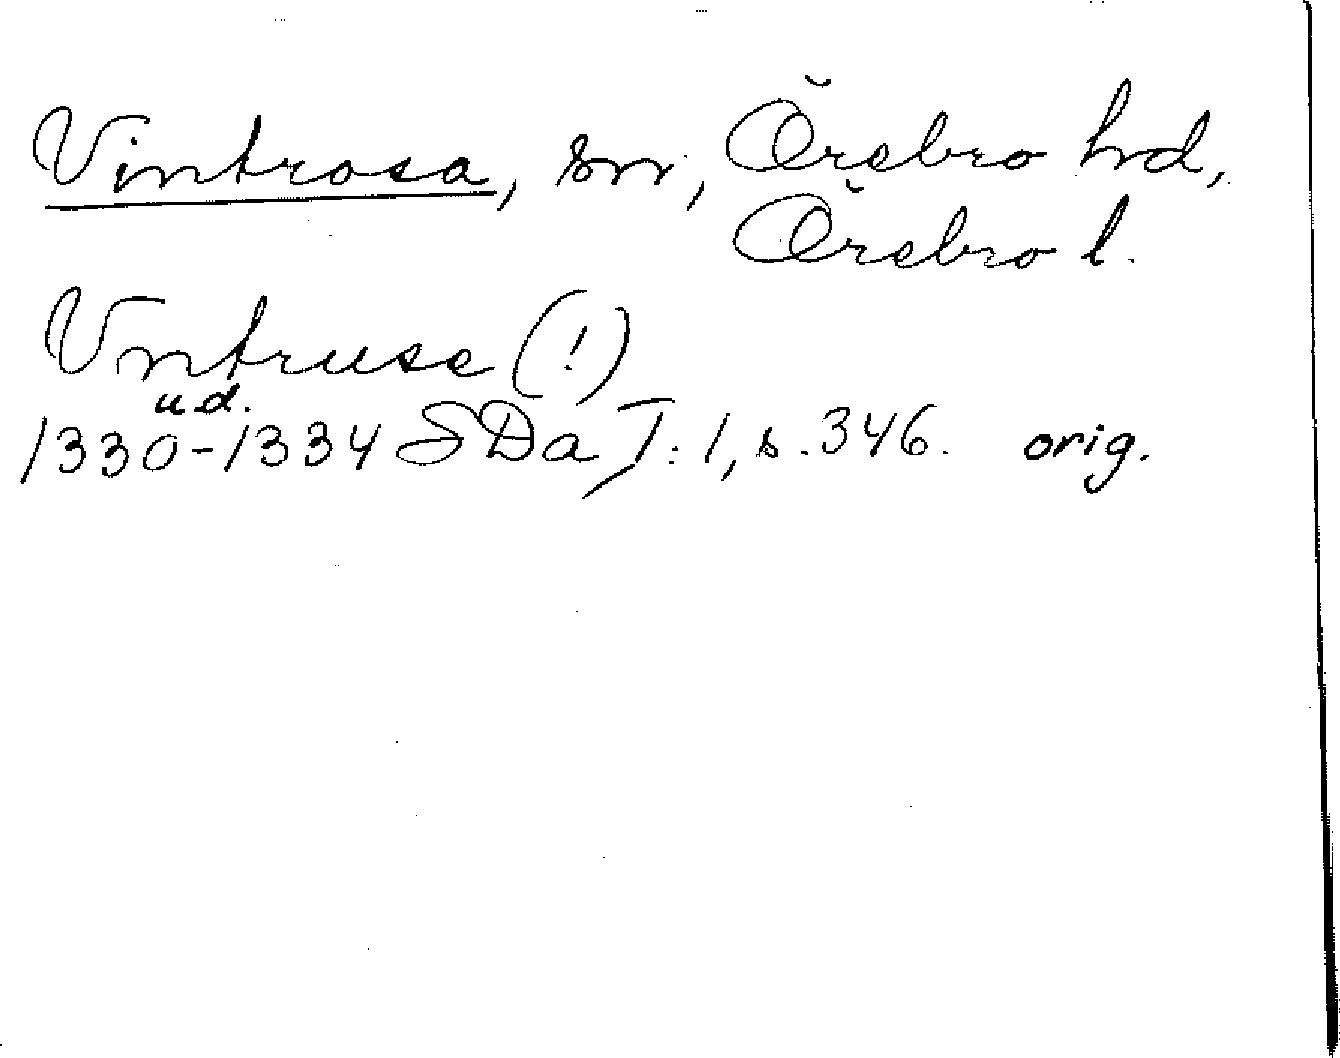 Vintrosa, sn, Örebro hrd,
Örebro l.
Vntruse (!)
u.d.
1330-1334 SDa I:1, s. 346. orig.